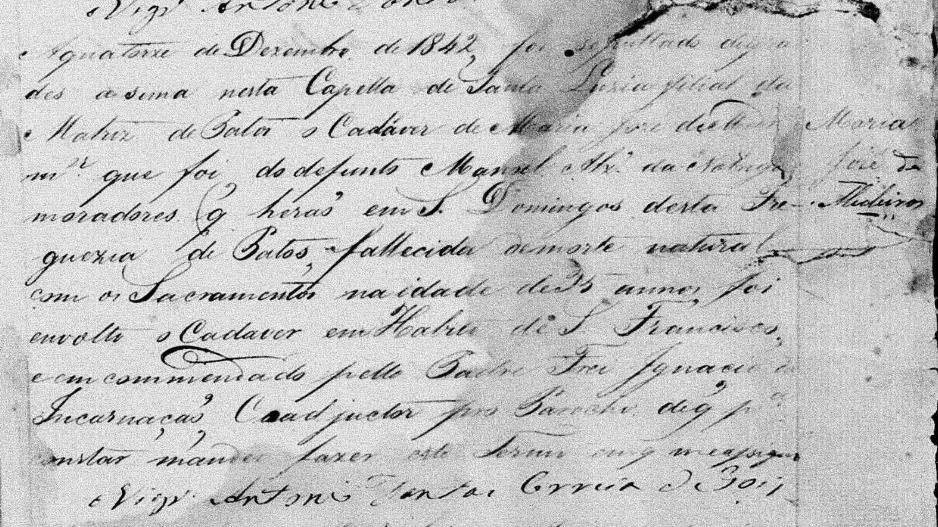 Vigrº Antonio
Aquatorze de Dezembro de 1842, foi sepultado degra
des asima nesta Capella de Santa Luzia filial da
Matriz de Patos o Cadaver de Maria José de Maria
mer. que foi do defunto Manoel Alz. da Nobrega José de
moradores q herão em S. Domingos desta Fre- Mideiros
guezia de Patos, fallecida de morte natural
com os Sacramentos na idade de 35 annos, foi
envolto o Cadaver em Habito de S Francisco,
e emcommendado pello Padre Frei Ignacio da
Incarnação, Coadjuctor pro Parocho, de q pª
constar mandei fazer este Termo em q me assigno
o Vigrº Antonio Dantas Correia de Gois